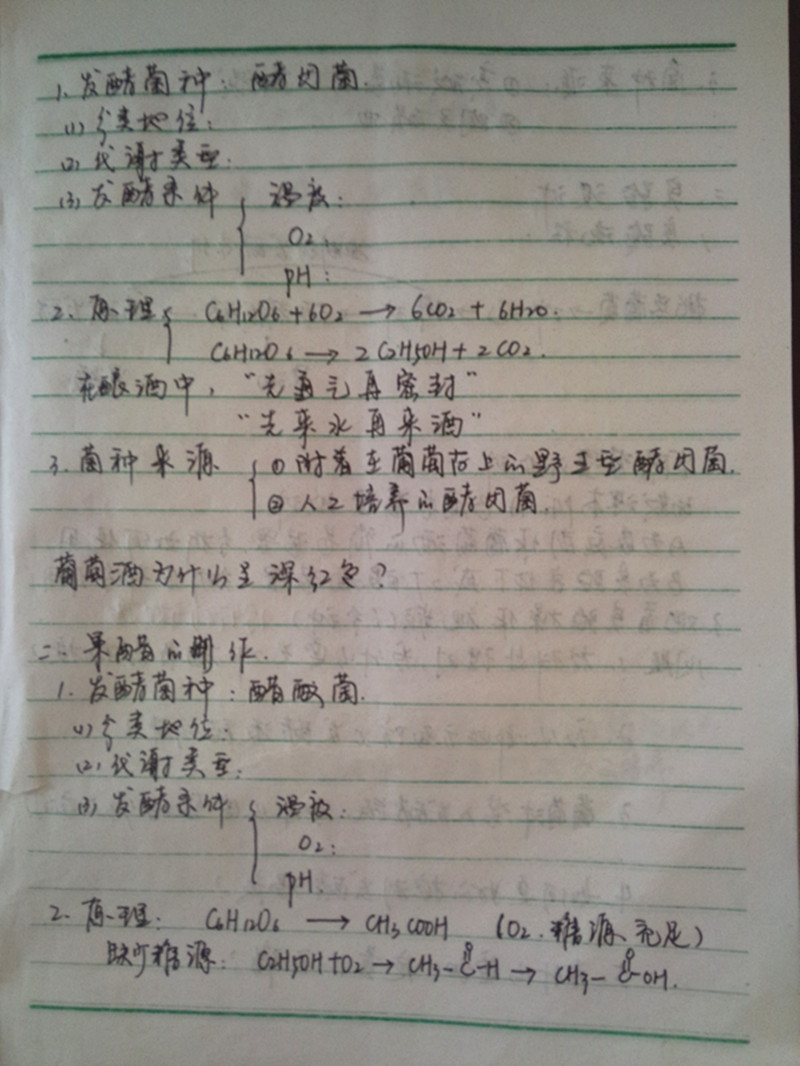 1. 发酵菌种：酵母菌.
(1) 分类地位：
(2) 代谢类型：
(3) 发酵条件 { 温度：
O2:
pH:
2. 原理 { C6H12O6+6O2 → 6CO2 + 6H2O.
C6H12O6 → 2C2H5OH+2CO2.
在酿酒中，“先通气再密封”
“先来水再来酒”
3. 菌种来源 { ① 附着在葡萄皮上的野生型酵母菌.
② 人工培养的酵母菌.
葡萄酒为什么呈深红色？
二. 果醋的制作.
1. 发酵菌种：醋酸菌.
(1) 分类地位：
(2) 代谢类型：
(3) 发酵条件 { 温度：
O2:
pH
2. 原理： C6H12O6 → CH3COOH (O2. 糖源充足)
缺少糖源： C2H5OH+O2 → CH3-C(=O)-H → CH3-C(=O)-OH.